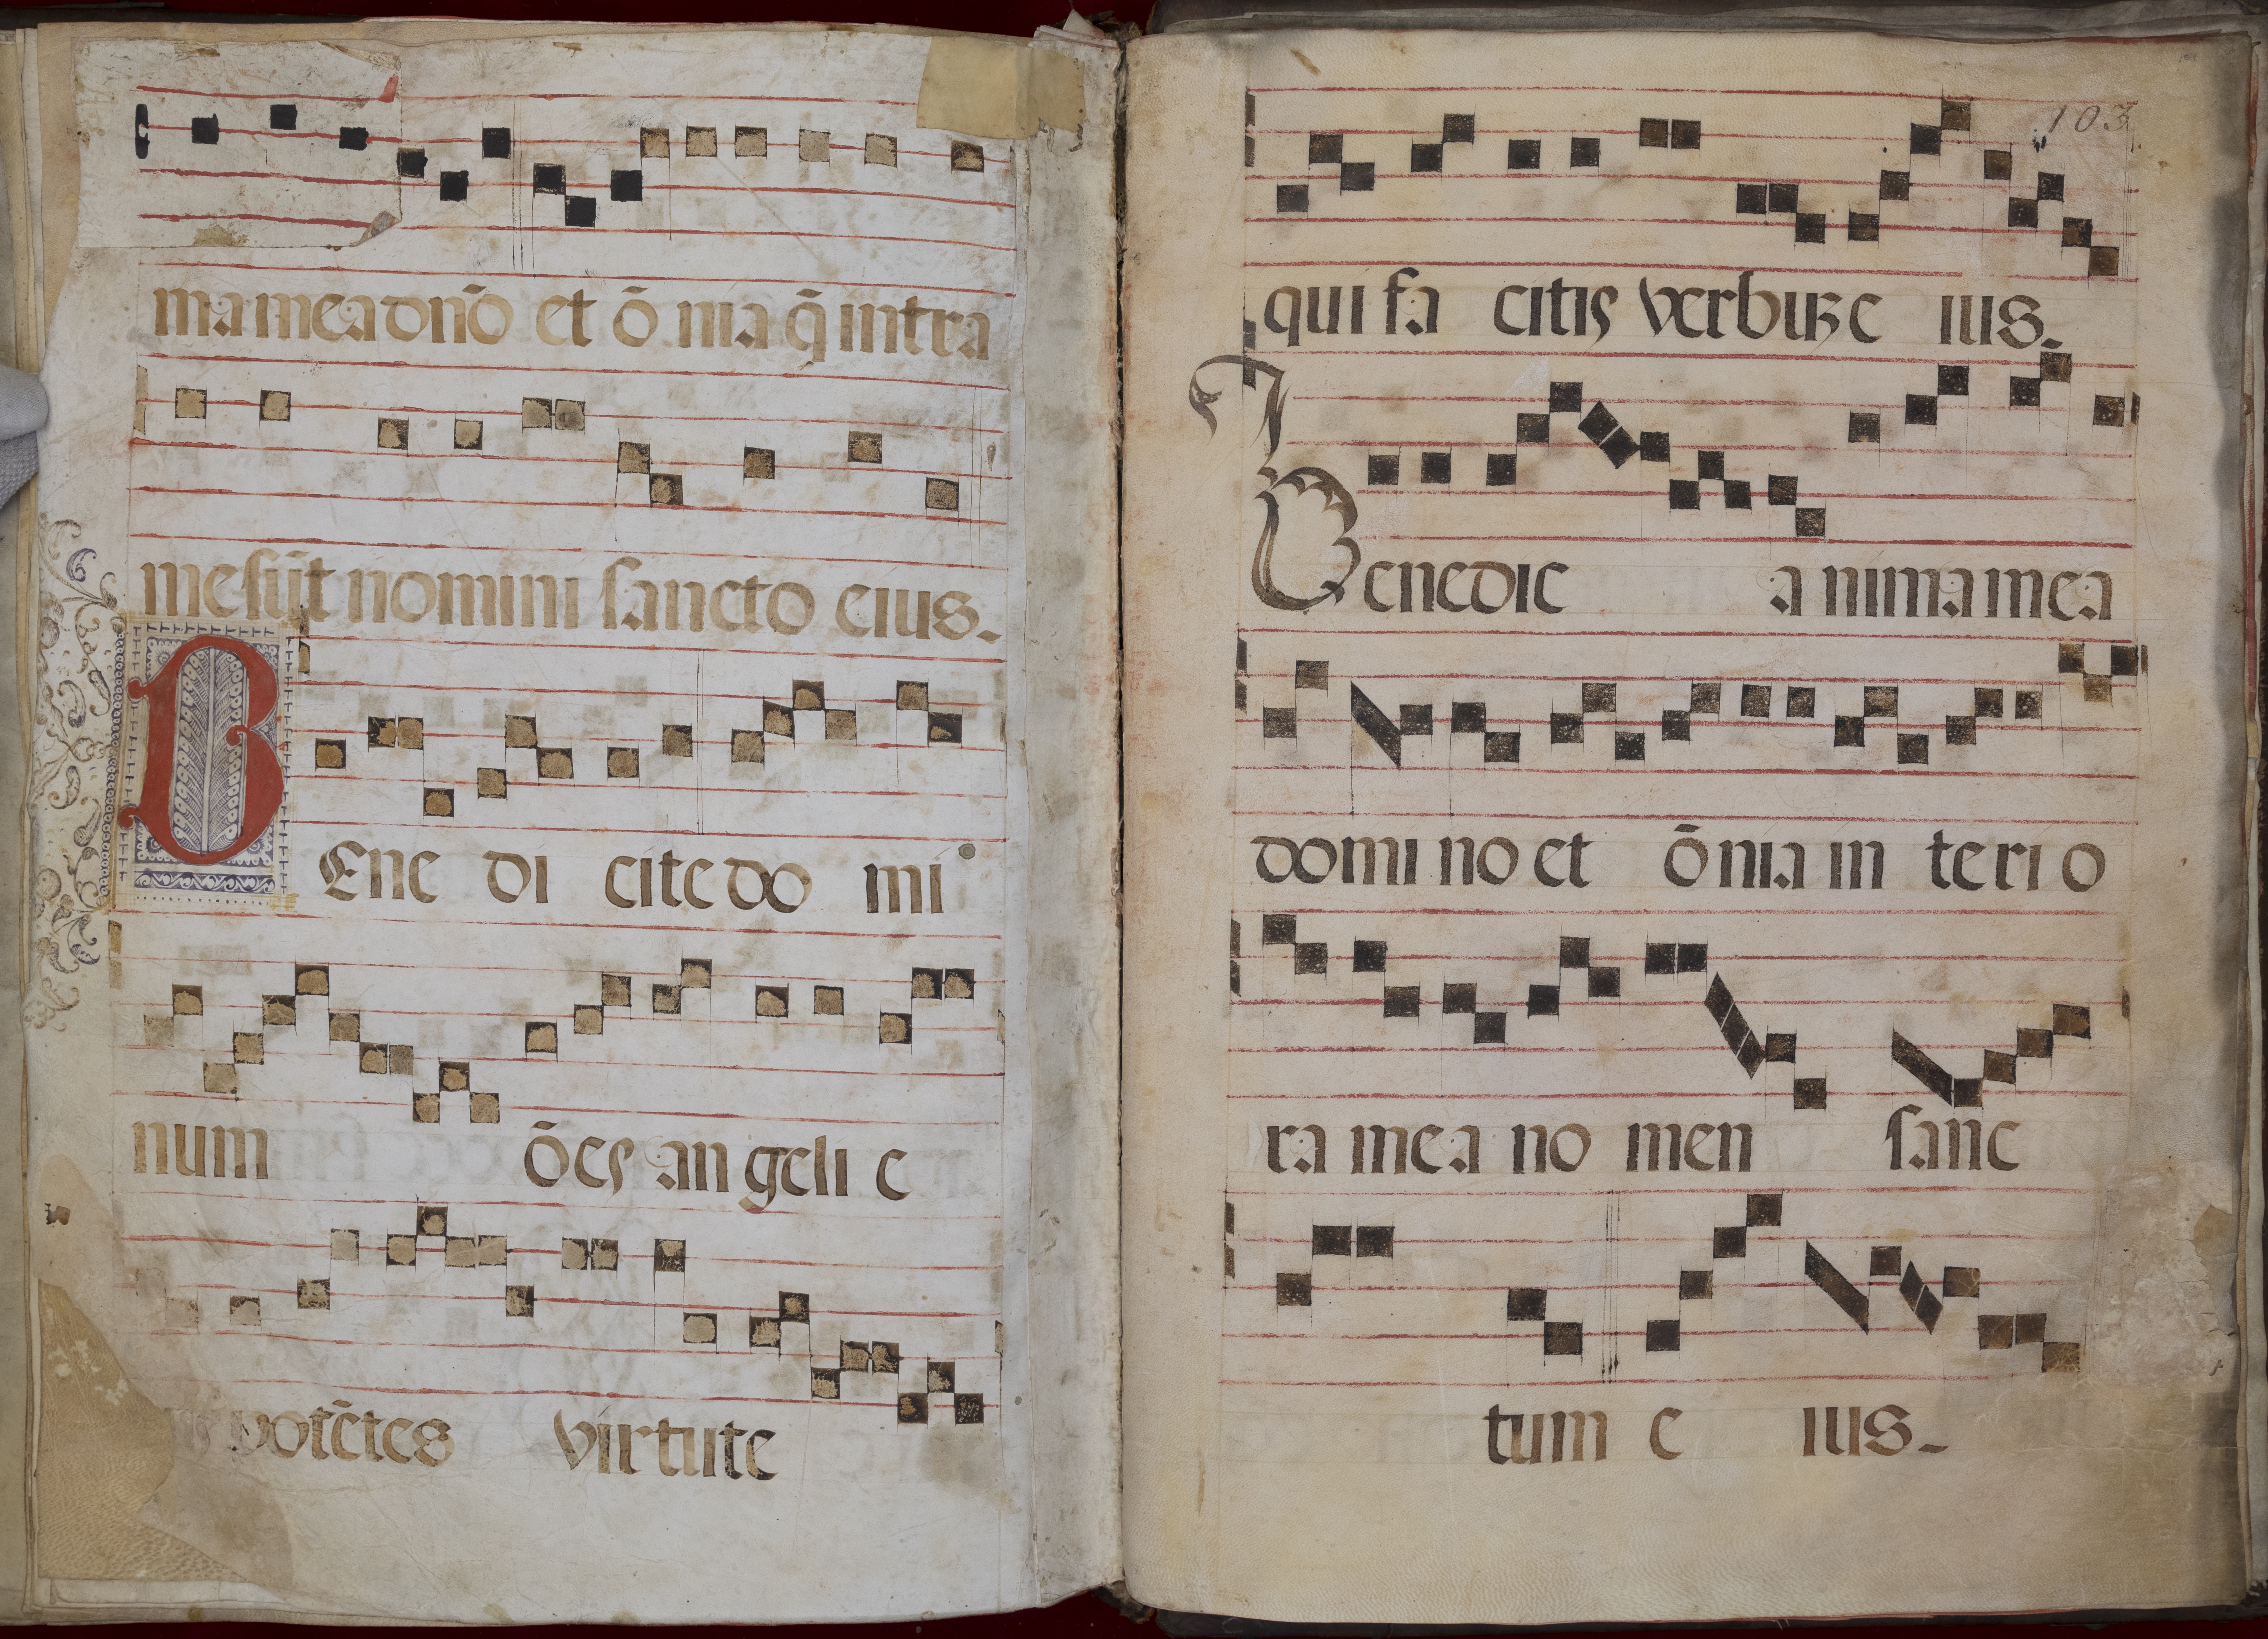 ma mea dno̅ et o̅ nia q̅ intra
me su̅t nomini sancto eius.
BEne di cite do mi
num o̅es an geli e
pote̅tes virtute
103
qui fa citis verbuz e ius.
Benedic a nima mea
domi no et o̅ nia in teri o
ra mea no men sanc
tum e ius.